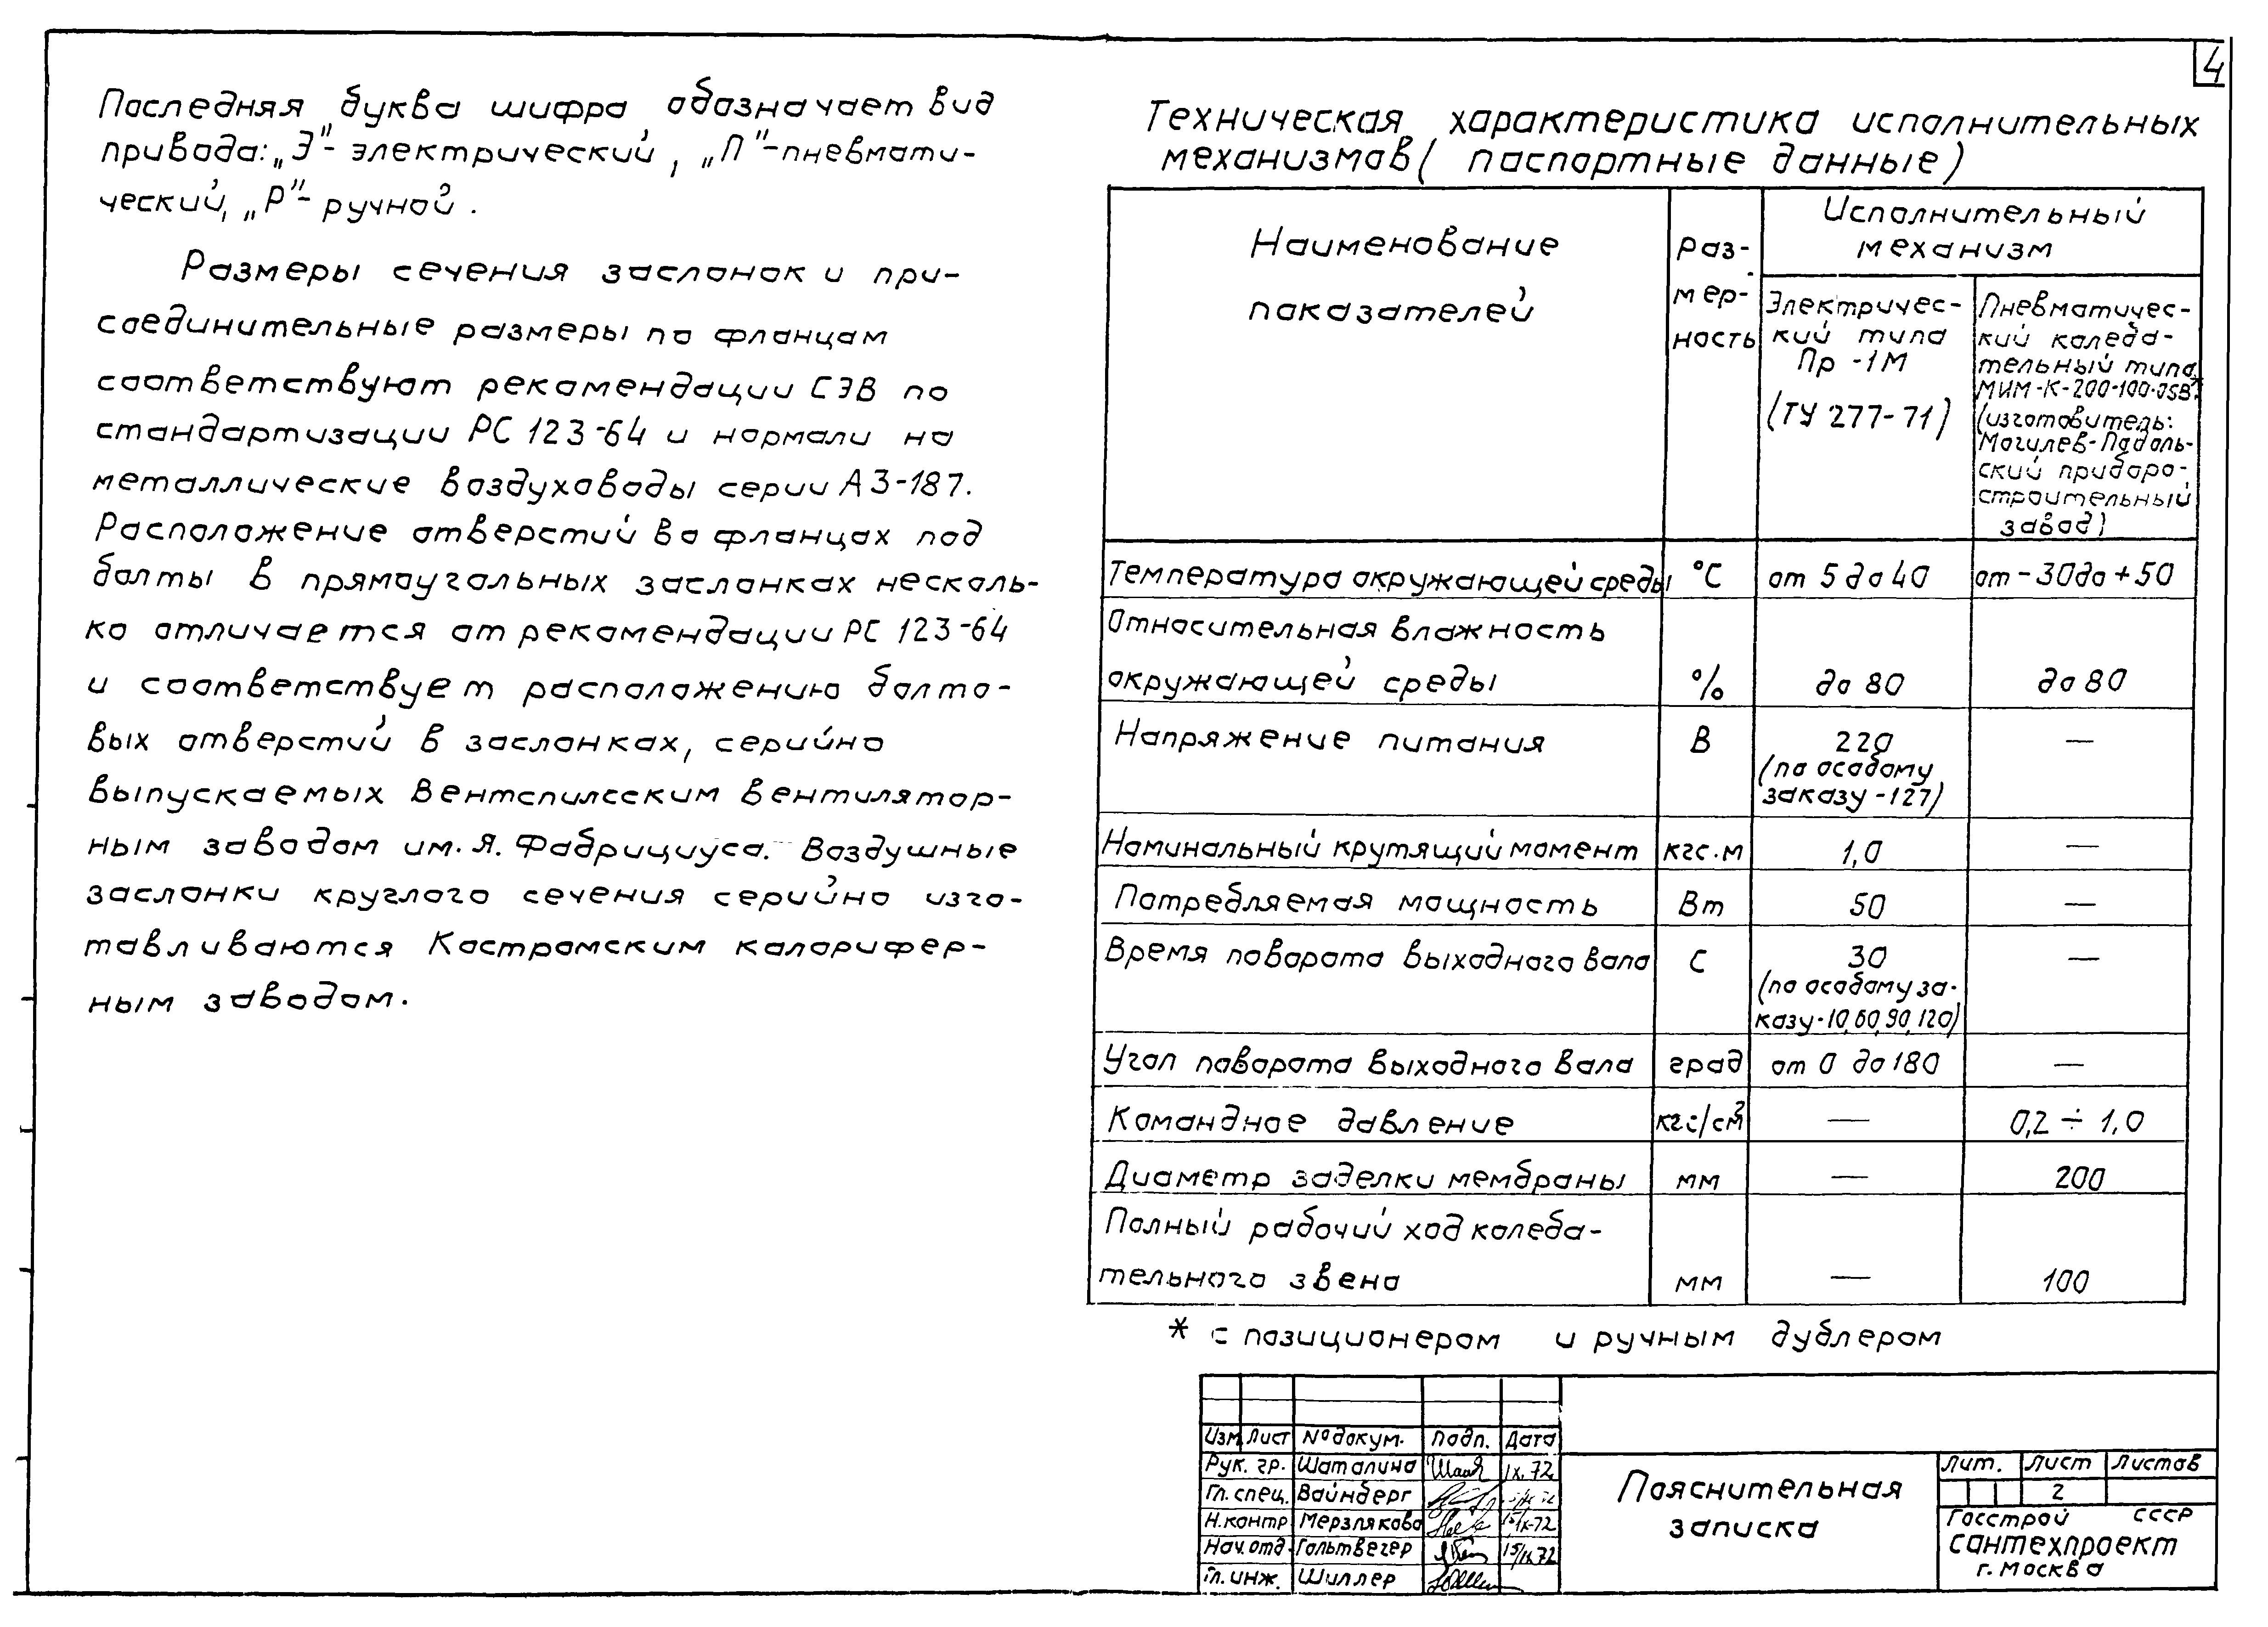 4
Последняя буква шифра обозначает вид
привода: „Э"- электрический, „П"-пневмати-
ческий, „Р"- ручной.
Размеры сечения заслонок и при-
соединительные размеры по фланцам
соответствуют рекомендации СЭВ по
стандартизации РС 123-64 и нормали на
металлические воздуховоды серии А3-187.
Расположение отверстий во фланцах под
болты в прямоугольных заслонках несколь-
ко отличается от рекомендации РС 123-64
и соответствует расположению болто-
вых отверстий в заслонках, серийно
выпускаемых Вентспилсским вентилятор-
ным заводом им. Я. Фабрициуса. Воздушные
заслонки круглого сечения серийно изго-
тавливаются Костромским калорифер-
ным заводом.
Техническая характеристика исполнительных
механизмов (паспортные данные)
Наименование
показателей
Раз-
мер-
ность
Исполнительный
механизм
Электричес-
кий типа
Пр -1М
(ТУ 277-71)
Пневматичес-
кий колеба-
тельный типа
МИМ-К-200-100-05В*
(изготовитель:
Могилев-Подоль-
ский приборо-
строительный
завод)
Температура окружающей среды °С от 5 до 40 от -30 до +50
Относительная влажность
окружающей среды % до 80 до 80
Напряжение питания В 220 —
(по особому
заказу -127)
Номинальный крутящий момент кгс.м 1,0 —
Потребляемая мощность Вт 50 —
Время поворота выходного вала С 30 —
(по особому за-
казу-10,60,90,120)
Угол поворота выходного вала град от 0 до 180 —
Командное давление кгс/см² — 0,2 ÷ 1,0
Диаметр заделки мембраны мм — 200
Полный рабочий ход колеба-
тельного звена мм — 100
* с позиционером и ручным дублером
Изм Лист № докум. Подп. Дата
Рук. гр. Шаталина IX.72
Гл. спец. Вайнберг
Н.контр Мерзлякова 15/IX-72
Нач.отд. Гольтвегер 15/IX72
Гл. инж. Шиллер
Пояснительная
записка
Лит. Лист Листов
2
Госстрой СССР
сантехпроект
г. Москва